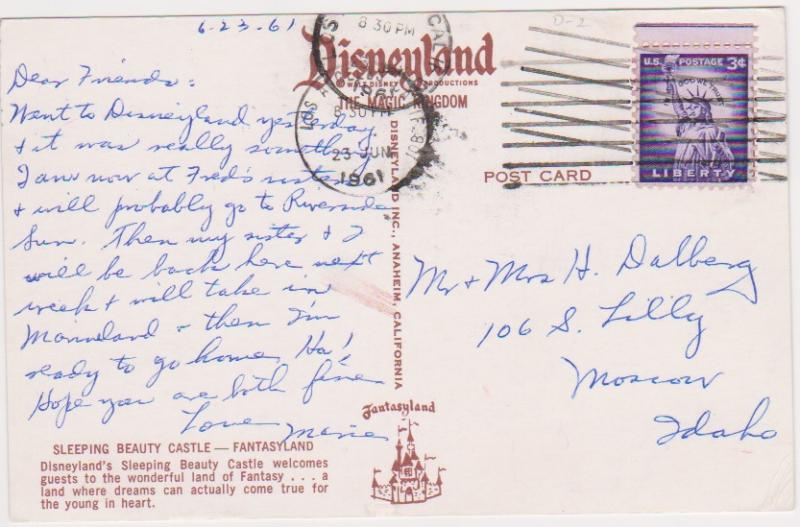 6-23-61
Dear Friends:
Went to Disneyland yesterday
& it was really something
I am now at Fred's sisters
& will probably go to Riverside
Sun. Then my sister & I
will be back here next
week & will take in
Marineland & then I'm
ready to go home, Ha!
Hope you are both fine
Love
Marie
SLEEPING BEAUTY CASTLE — FANTASYLAND
Disneyland's Sleeping Beauty Castle welcomes
guests to the wonderful land of Fantasy . . . a
land where dreams can actually come true for
the young in heart.
Disneyland
WALT DISNEY PRODUCTIONS
THE MAGIC KINGDOM
8 30 PM
8 30 PM
23 JUN
1961
DISNEYLAND INC., ANAHEIM, CALIFORNIA
Fantasyland
D-2
U.S. POSTAGE 3¢
IN GOD WE TRUST
LIBERTY
POST CARD
Mr & Mrs H. Dalberg
106 S. Lilly
Moscow
Idaho